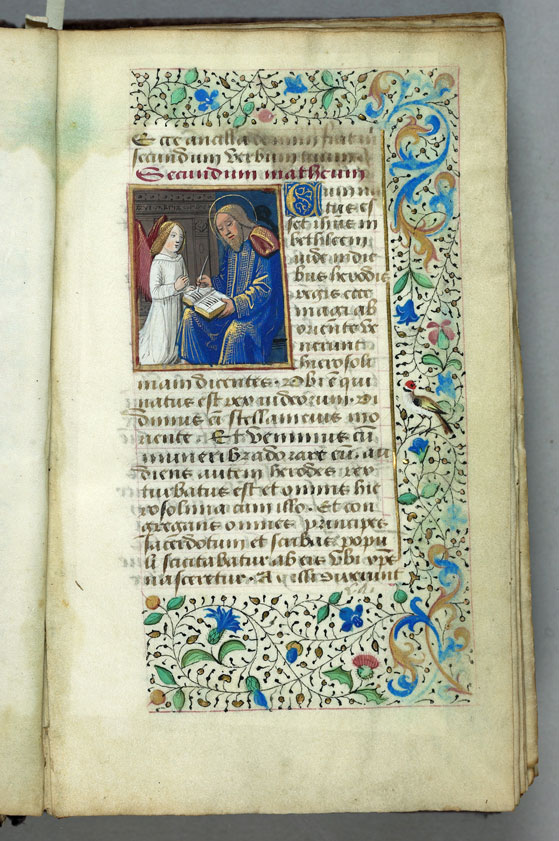 Ecce ancilla domini fiat m
secundum verbum tuum.
Secundum matheum
Cum na
tus es
set ihus in
bethleem
iude in die
bus herodis
regis ecce
magi ab
oriente ve
nerunt
hierosoli
mam dicentes. Ubi è qui
natus est rex iudeorum. Vi
dimus eñ stellam eius in o
riente. Et venimus cũ
munerib adorare eũ. au
diens autem herodes rex
turbatus est et omnis hie
rosolima cum illo. Et con
gregans omnes principes
sacerdotum et scribas popu
li sciscitabatur ab eis ubi xpc
nasceretur. At illi dixerunt